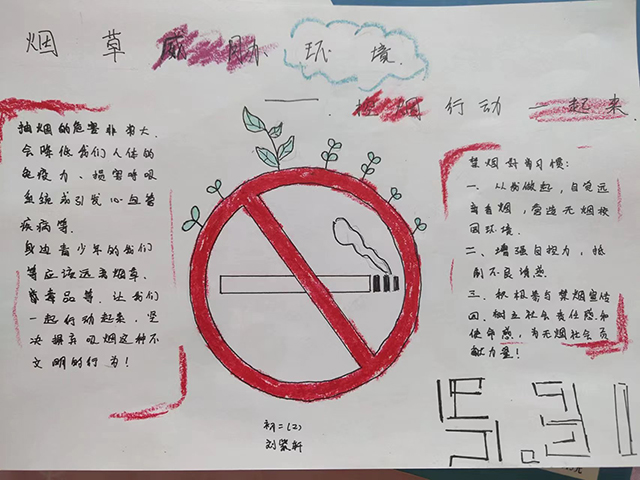 烟草威胁环境.
——. 控烟行动一起来.
抽烟的危害非常大.
会降低我们人体的
免疫力、损害呼吸
系统或引发心血管
疾病等.
身边青少年的我们
等应该远离烟草.
毒品等.让我们
一起行动起来,坚
决摒弃吸烟这种不
文明的行为!
禁烟好习惯:
一、从我做起,自觉远
离香烟,营造无烟校
园环境.
二、增强自控力,抵
制不良诱惑.
三、积极参与禁烟宣传
四、树立社会责任感和
使命感,为无烟社会贡
献力量!
初二(2)
刘紫轩
5.31